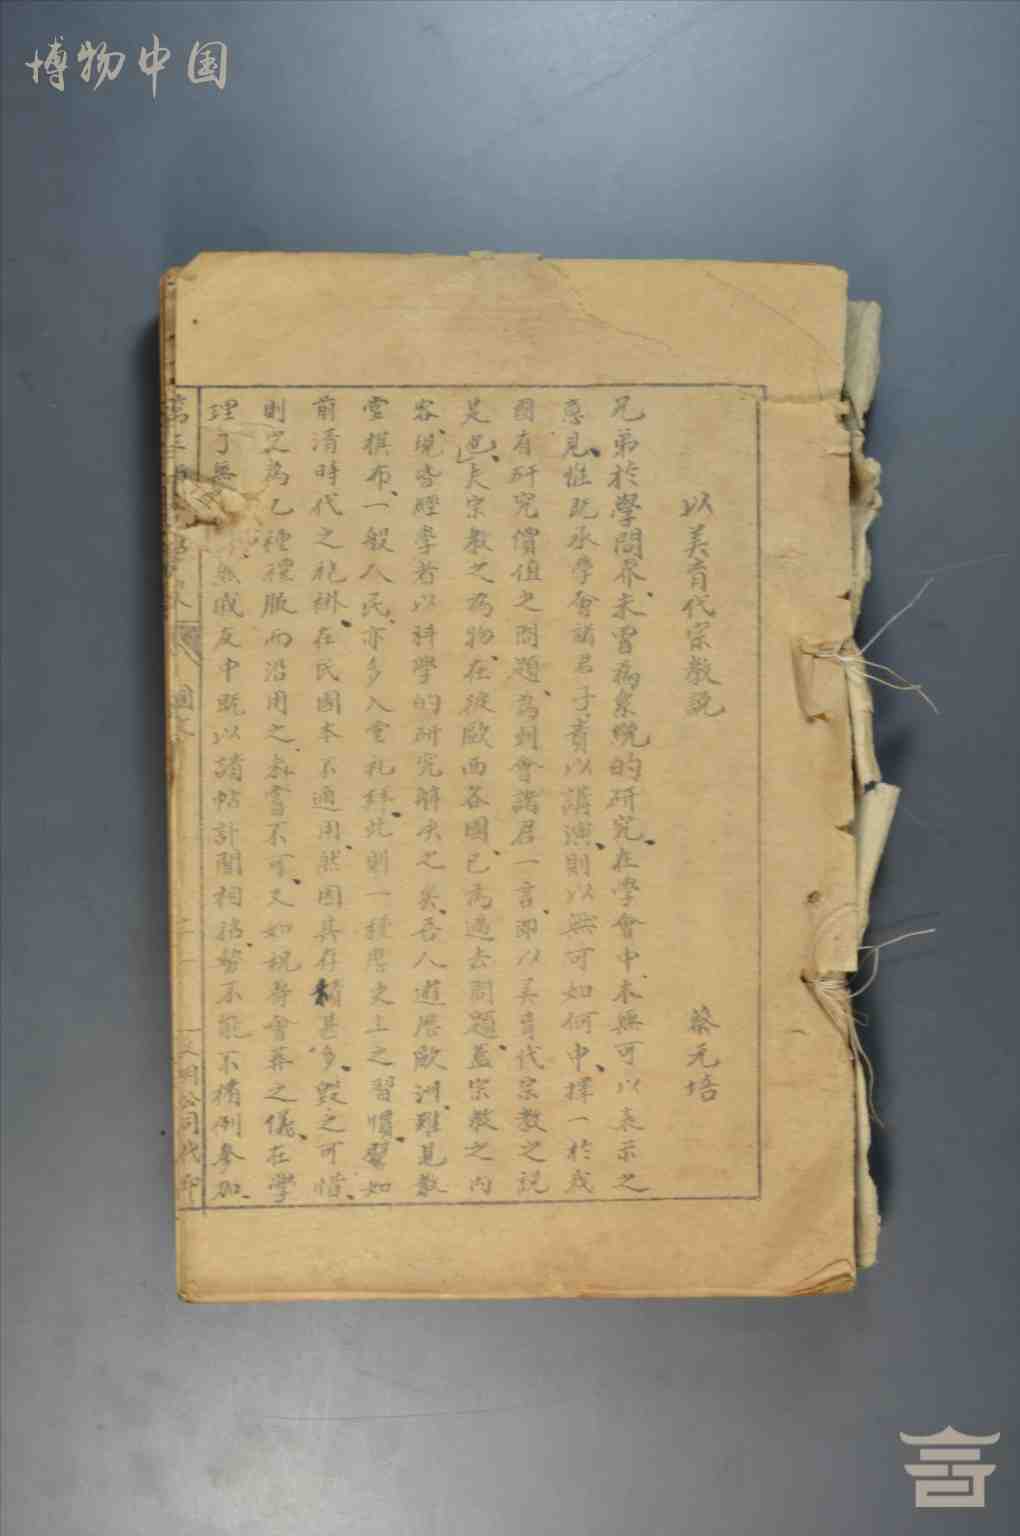 博物中国
以美育代宗教説 蔡元培
兄弟於學問界、未曾為系統的研究、在學會中、本無可以表示之
意見、惟既承學會諸君子、責以講演、則以無可如何中、擇一於我
國有研究價值之問題、為到會諸君一言、即以美育代宗教之説
是也、夫宗教之為物、在彼歐西各國、已為過去問題、蓋宗教之内
容、現皆經學者以科學的研究解決之矣、吾人遊歷歐洲、雖見教
堂棋布、一般人民、亦多入堂礼拜、此則一種歷史上之習慣、譬如
前清時代之袍褂、在民國本不適用、然因其存積甚多、毀之可惜、
則定為乙種禮服而沿用之、未嘗不可、又如祝壽會葬之儀、在學
理了無 然戚友中既以請帖訃聞相招、勢不能不循例參加、
國文 二一 文明公司代印